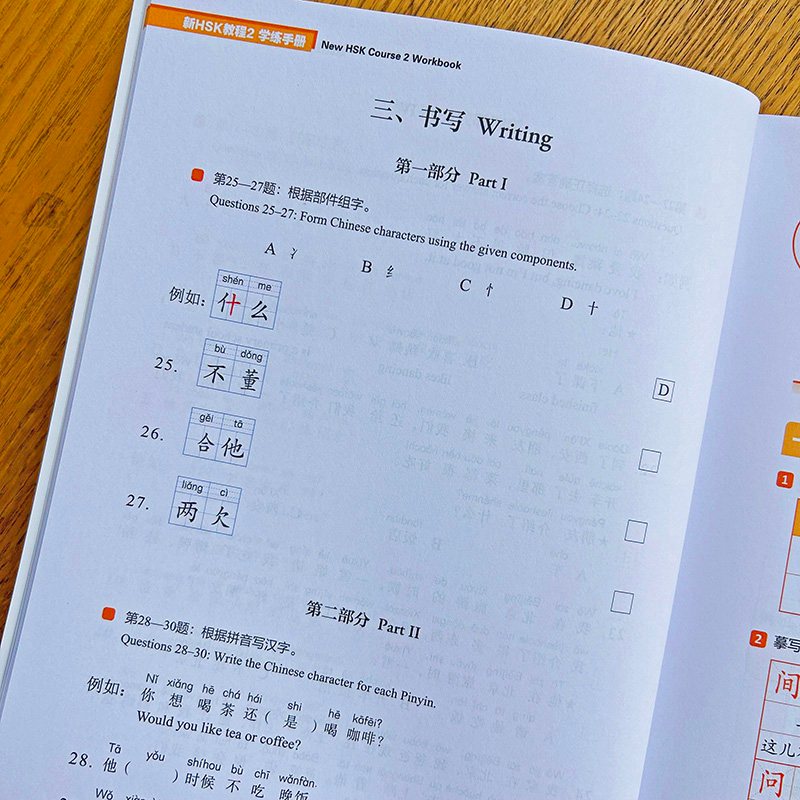 新HSK教程2 学练手册 New HSK Course 2 Workbook
三、书写 Writing
第一部分 Part I
第25—27题：根据部件组字。
Questions 25–27: Form Chinese characters using the given components.
A 冫 B 纟 C 忄 D 十
shén me
例如： 什么 D
bù dǒng
25. 不董
gěi tā
26. 合他
liǎng cì
27. 两欠
第二部分 Part II
第28—30题：根据拼音写汉字。
Questions 28–30: Write the Chinese character for each Pinyin.
Nǐ xiǎng hē chá hái shi hē kāfēi?
例如： 你想喝茶还（是）喝咖啡？
Would you like tea or coffee?
Tā yǒu shíhou bù chī wǎnfàn.
28. 他（ ）时候不吃晚饭
1
2 摹写
间
这儿
问